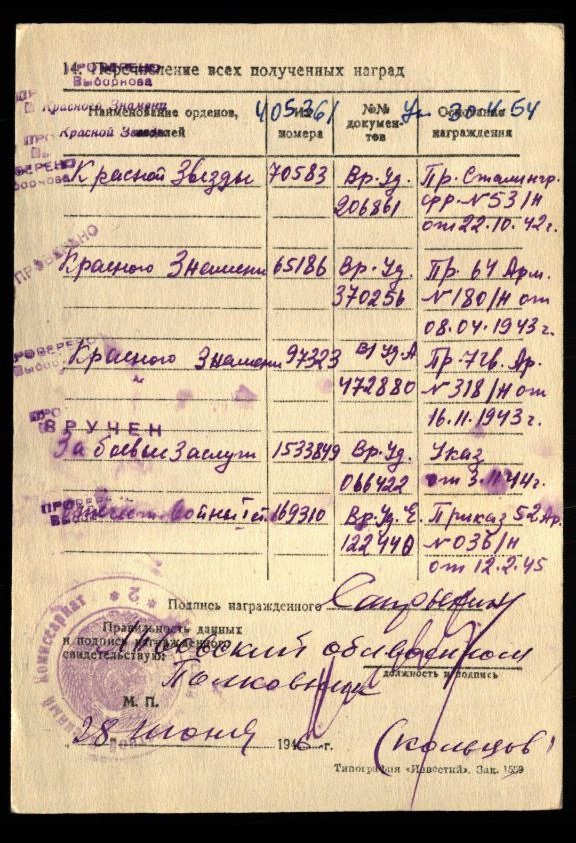 ПРОВЕРЕНО
14. Перечисление всех полученных наград
Выборнова
Красного Знамени 405361 Ук. 54
Наименование орденов, №№ номера №№ документов Основание награждения
Красной Звезды
медалей
ПРОВЕРЕНО
Красной Звезды 70583 Вр. Уд. Пр. Сталингр.
206861 фр. N 53/н
от 22.10.42г.
ПРОВЕРЕНО
Красного Знамени 65186 Вр. Уд. Пр. 64 Арм.
370256 N 180/н от
08.04.1943г.
ПРОВЕРЕНО
Красного Знамени 97323 Вр Уд. А Пр. 7 гв. Ар.
472880 N 318/н от
16.11.1943г.
ВРУЧЕН
За боевые заслуги 1533849 Вр. Уд. Указ
066422 от 3. 44г.
войны 169310 Вр. Уд. Е Приказ 52 Ар.
122440 N 036/н
от 12.2.45
Подпись награжденного
Правильность данных
и подпись награжденного
свидетельствую:
облвоенком
должность и подпись
Полковник
М. П.
"28" июня 194 г. (Кольцов)
Типография «Известий». Зак.